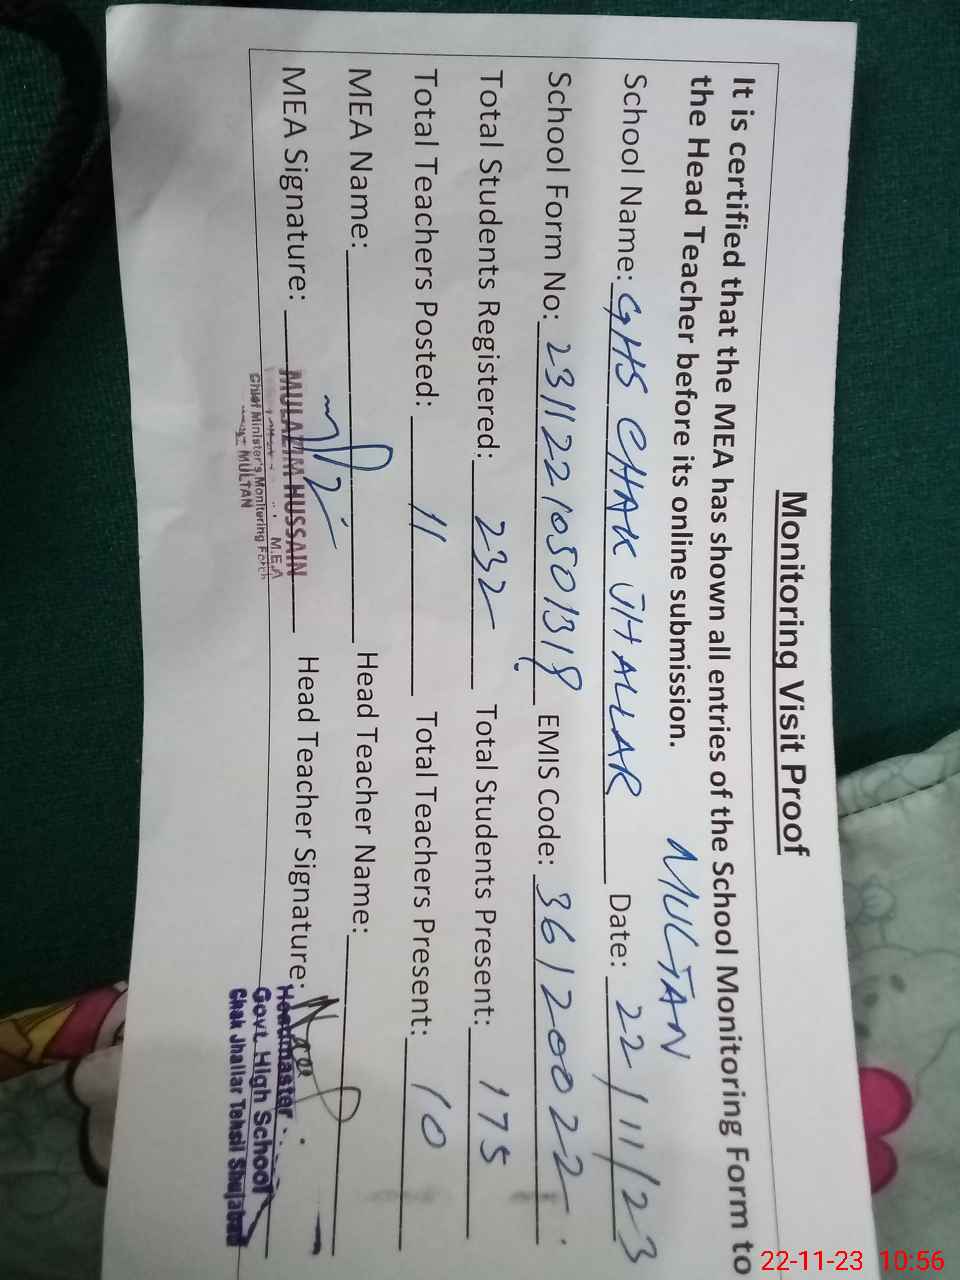 Monitoring Visit Proof
It is certified that the MEA has shown all entries of the School Monitoring Form to
the Head Teacher before its online submission.
MULTAN
School Name: GHS CHAK JHALLAR Date: 22/11/23
School Form No: 23112210501318 EMIS Code: 36120022
Total Students Registered: 232 Total Students Present: 175
Total Teachers Posted: 11 Total Teachers Present: 10
MEA Name: Head Teacher Name:
MEA Signature: Head Teacher Signature:
MULAZIM HUSSAIN
M.E.A
Chief Minister's Monitoring Force
MULTAN
Headmaster
Govt. High School
Chak Jhallar Tehsil Shujabad
22-11-23 10:56